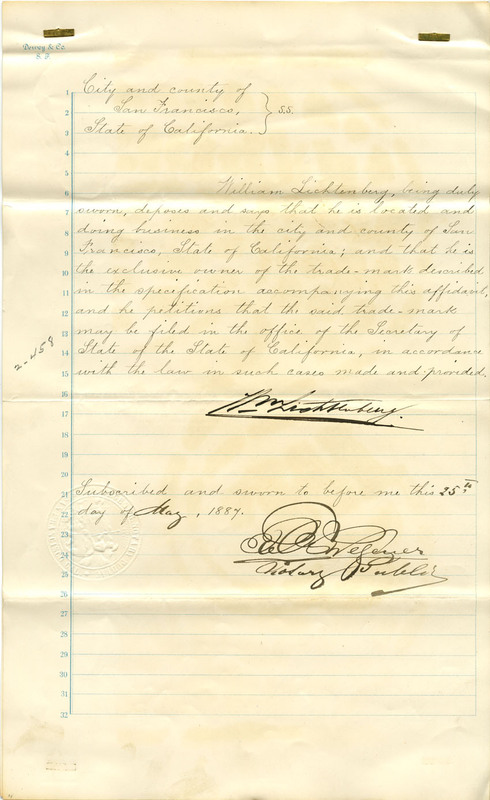 Dewey & Co.
S. F.
1 City and county of
2 San Francisco, } S.S.
3 State of California.
4
5
6 William Lichtenberg, being duly
7 sworn, deposes and says that he is located and
8 doing business in the city and county of San
9 Francisco, State of California; and that he is
10 the exclusive owner of the trade-mark described
11 in the specification accompanying this affidavit,
12 and he petitions that the said trade-mark
13 may be filed in the office of the Secretary of
14 State of the State of California, in accordance
15 with the law in such cases made and provided.
2-458
16
17 Wm Lichtenberg.
18
19
20
21 Subscribed and sworn to before me this 25th
22 day of May, 1887.
23
24
25 Notary Public
26
27
28
29
30
31
32